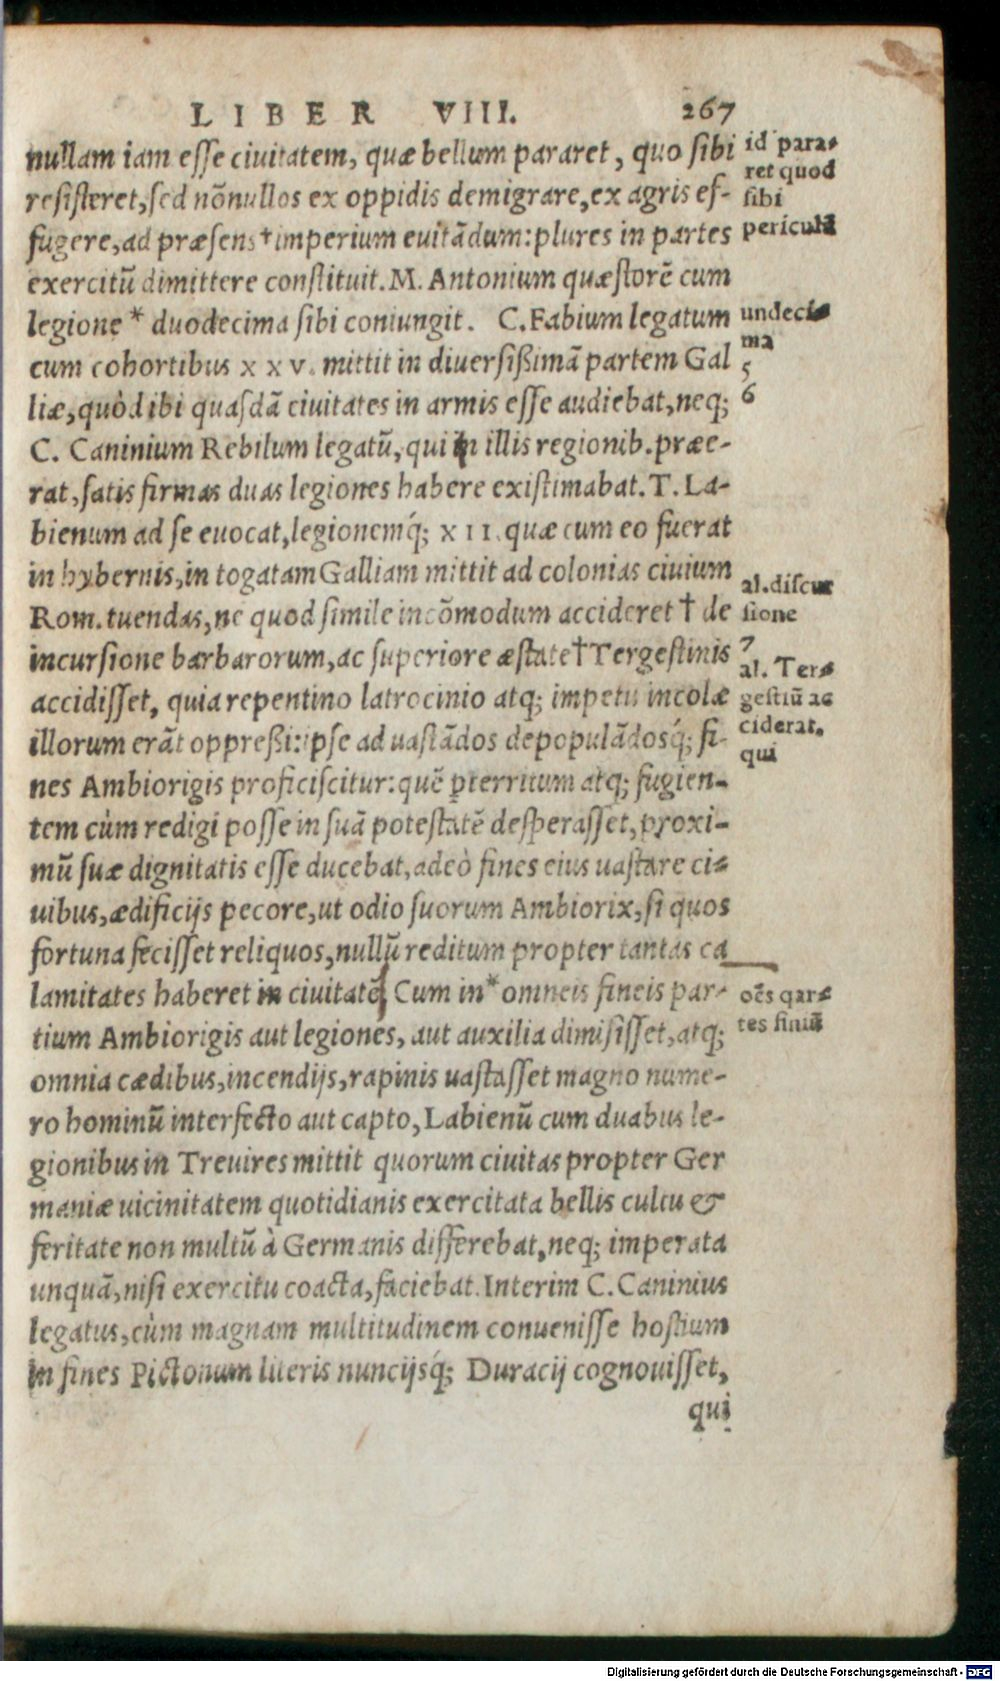 LIBER VIII. 267
nullam iam esse ciuitatem, quæ bellum pararet, quo sibi
resisteret, sed nõnullos ex oppidis demigrare, ex agris ef-
fugere, ad præsens † imperium euitãdum: plures in partes
exercitũ dimittere constituit. M. Antonium quæstorẽ cum
legione * duodecima sibi coniungit. C. Fabium legatum
cum cohortibus XXV. mittit in diuersißimã partem Gal
liæ, quòd ibi quasdã ciuitates in armis esse audiebat, neq;
C. Caninium Rebilum legatũ, qui in illis regionib. præe-
rat, satis firmas duas legiones habere existimabat. T. La-
bienum ad se euocat, legionemq́; XII. quæ cum eo fuerat
in hybernis, in togatam Galliam mittit ad colonias ciuium
Rom. tuendas, ne quod simile incõmodum accideret † de
incursione barbarorum, ac superiore æstate † Tergestinis
accidisset, quia repentino latrocinio atq; impetu incolæ
illorum erãt oppreßi: ipse ad uastãdos depopulãdosq́; fi-
nes Ambiorigis proficiscitur: quẽ ꝑterritum atq; fugien-
tem cùm redigi posse in suã potestatẽ desperasset, proxi-
mũ suæ dignitatis esse ducebat, adeò fines eius uastare ci-
uibus, ædificijs pecore, ut odio suorum Ambiorix, si quos
fortuna fecisset reliquos, nullũ reditum propter tantas ca
lamitates haberet in ciuitatẽ. Cum in * omneis fineis par-
tium Ambiorigis aut legiones, aut auxilia dimisisset, atq;
omnia cædibus, incendijs, rapinis uastasset magno nume-
ro hominũ interfecto aut capto, Labienũ cum duabus le-
gionibus in Treuires mittit quorum ciuitas propter Ger
maniæ uicinitatem quotidianis exercitata bellis cultu &
feritate non multũ à Germanis differebat, neq; imperata
unquã, nisi exercitu coacta, faciebat. Interim C. Caninius
legatus, cùm magnam multitudinem conuenisse hostium
in fines Pictonum literis nuncijsq́; Duracij cognouisset,
qui
id para-
ret quod
sibi
periculũ
undeci-
ma
5
6
al. discur
sione
7
al. Ter-
gestiũ ac
ciderat,
qui
oẽs par-
tes finiũ
Digitalisierung gefördert durch die Deutsche Forschungsgemeinschaft - DFG